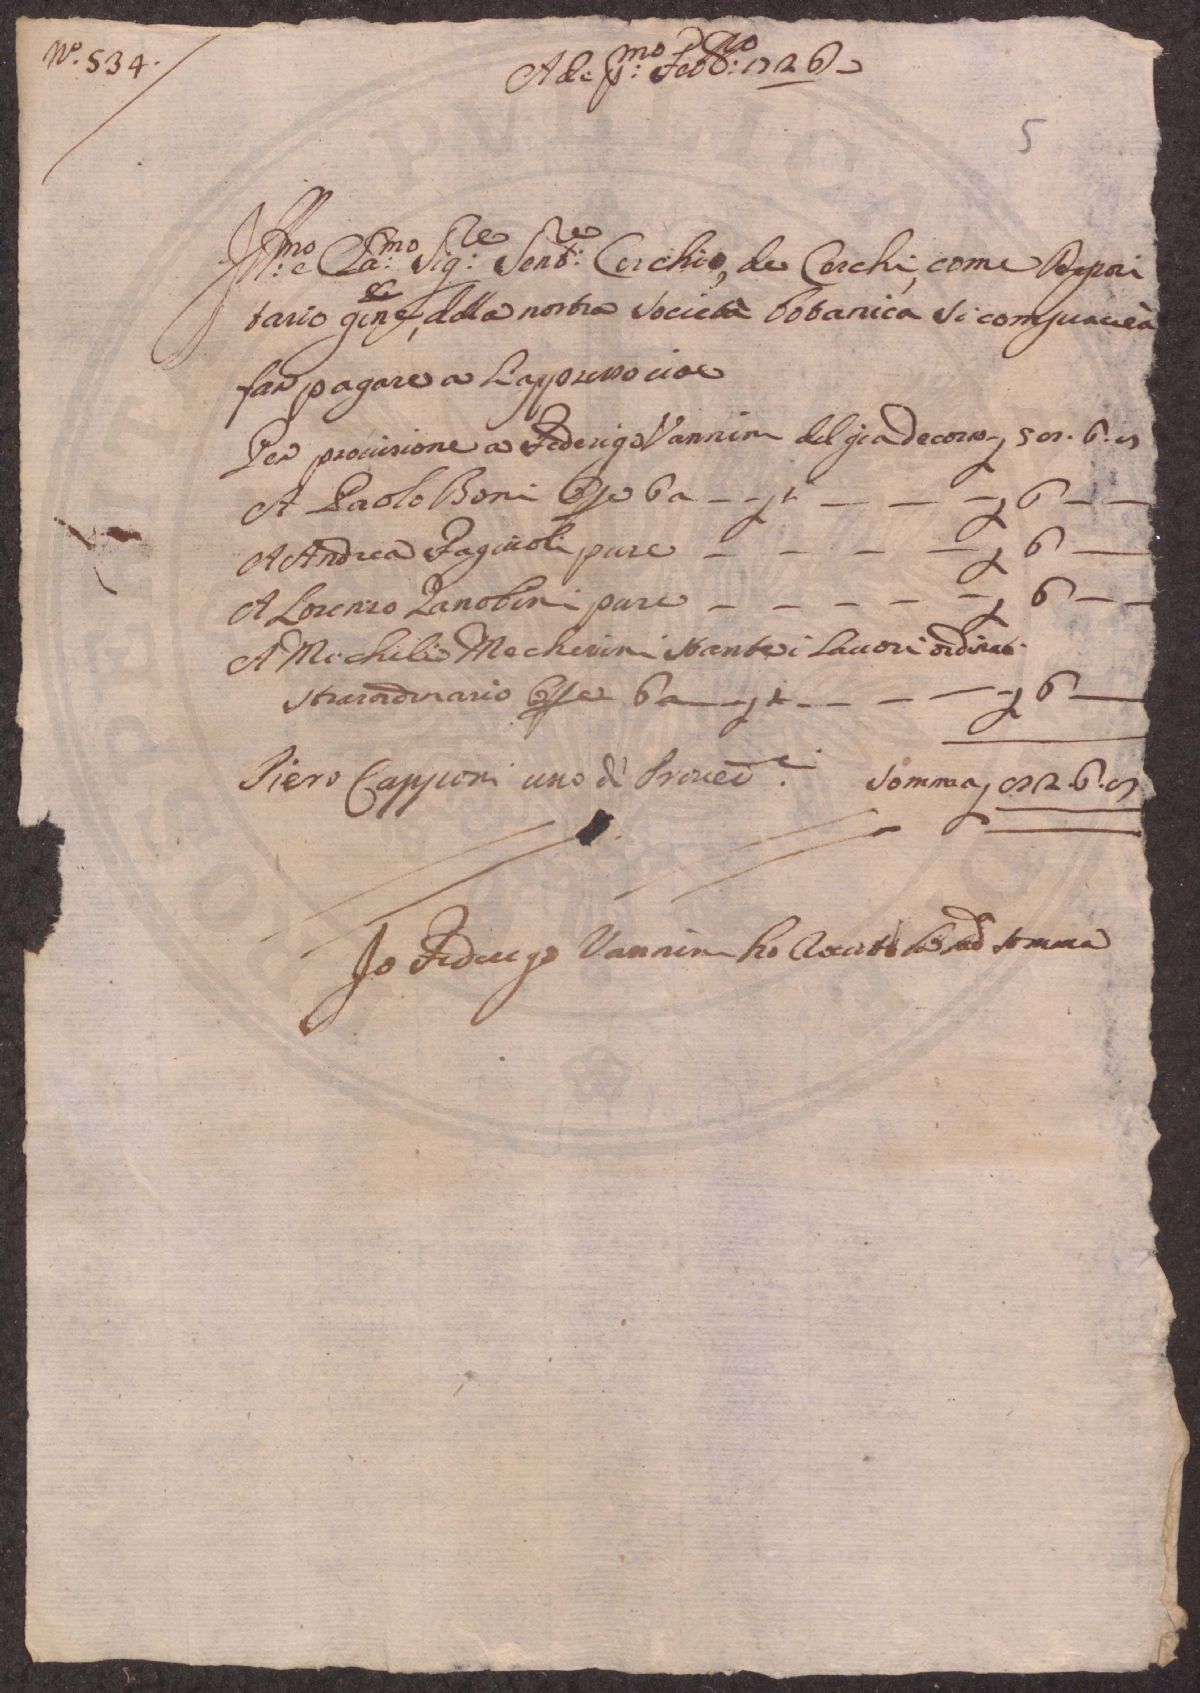 N.o 534.
A dì p:mo Febb:ro 1726
5
Ill:mo e Cla:mo Sig:re Sen:re Cerchio, de Cerchi, come Deposi
tario gen:e, della nostra Società botanica si compiacerà
far pagare a L'appresso cioè
Per provisione a Federigo Vannini del gia decorso
A Paolo Boni 6
A Andrea Fagiuoli pure 6
A Lorenzo Zanobini pure 6
A Michele Mecherini stante i Lavori ordinati
straordinario 6
Piero Capponi uno de Proved:i Somma
Io Federigo Vannini ho riceuto somma